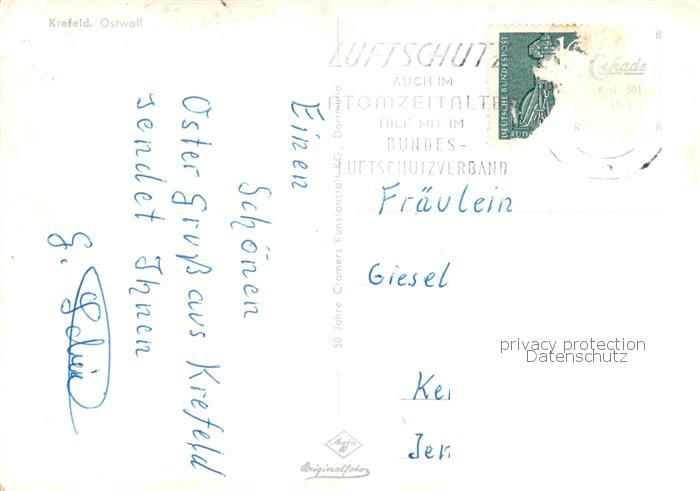 Krefeld. Ostwall
Einen
Schönen
Oster Gruß aus Krefeld
sendet Ihnen
G.
50 Jahre Cramers Kunstanstalt KG., Dortmund
LUFTSCHUTZ
AUCH IM
ATOMZEITALTE
HILF MIT IM
BUNDES-
LUFTSCHUTZVERBAND
DEUTSCHE BUNDESPOST
Cekade
Krd. 501
B
R
B
Fräulein
Giesel
Ke
Jen
privacy protection
Datenschutz
Agfa
Originalfoto